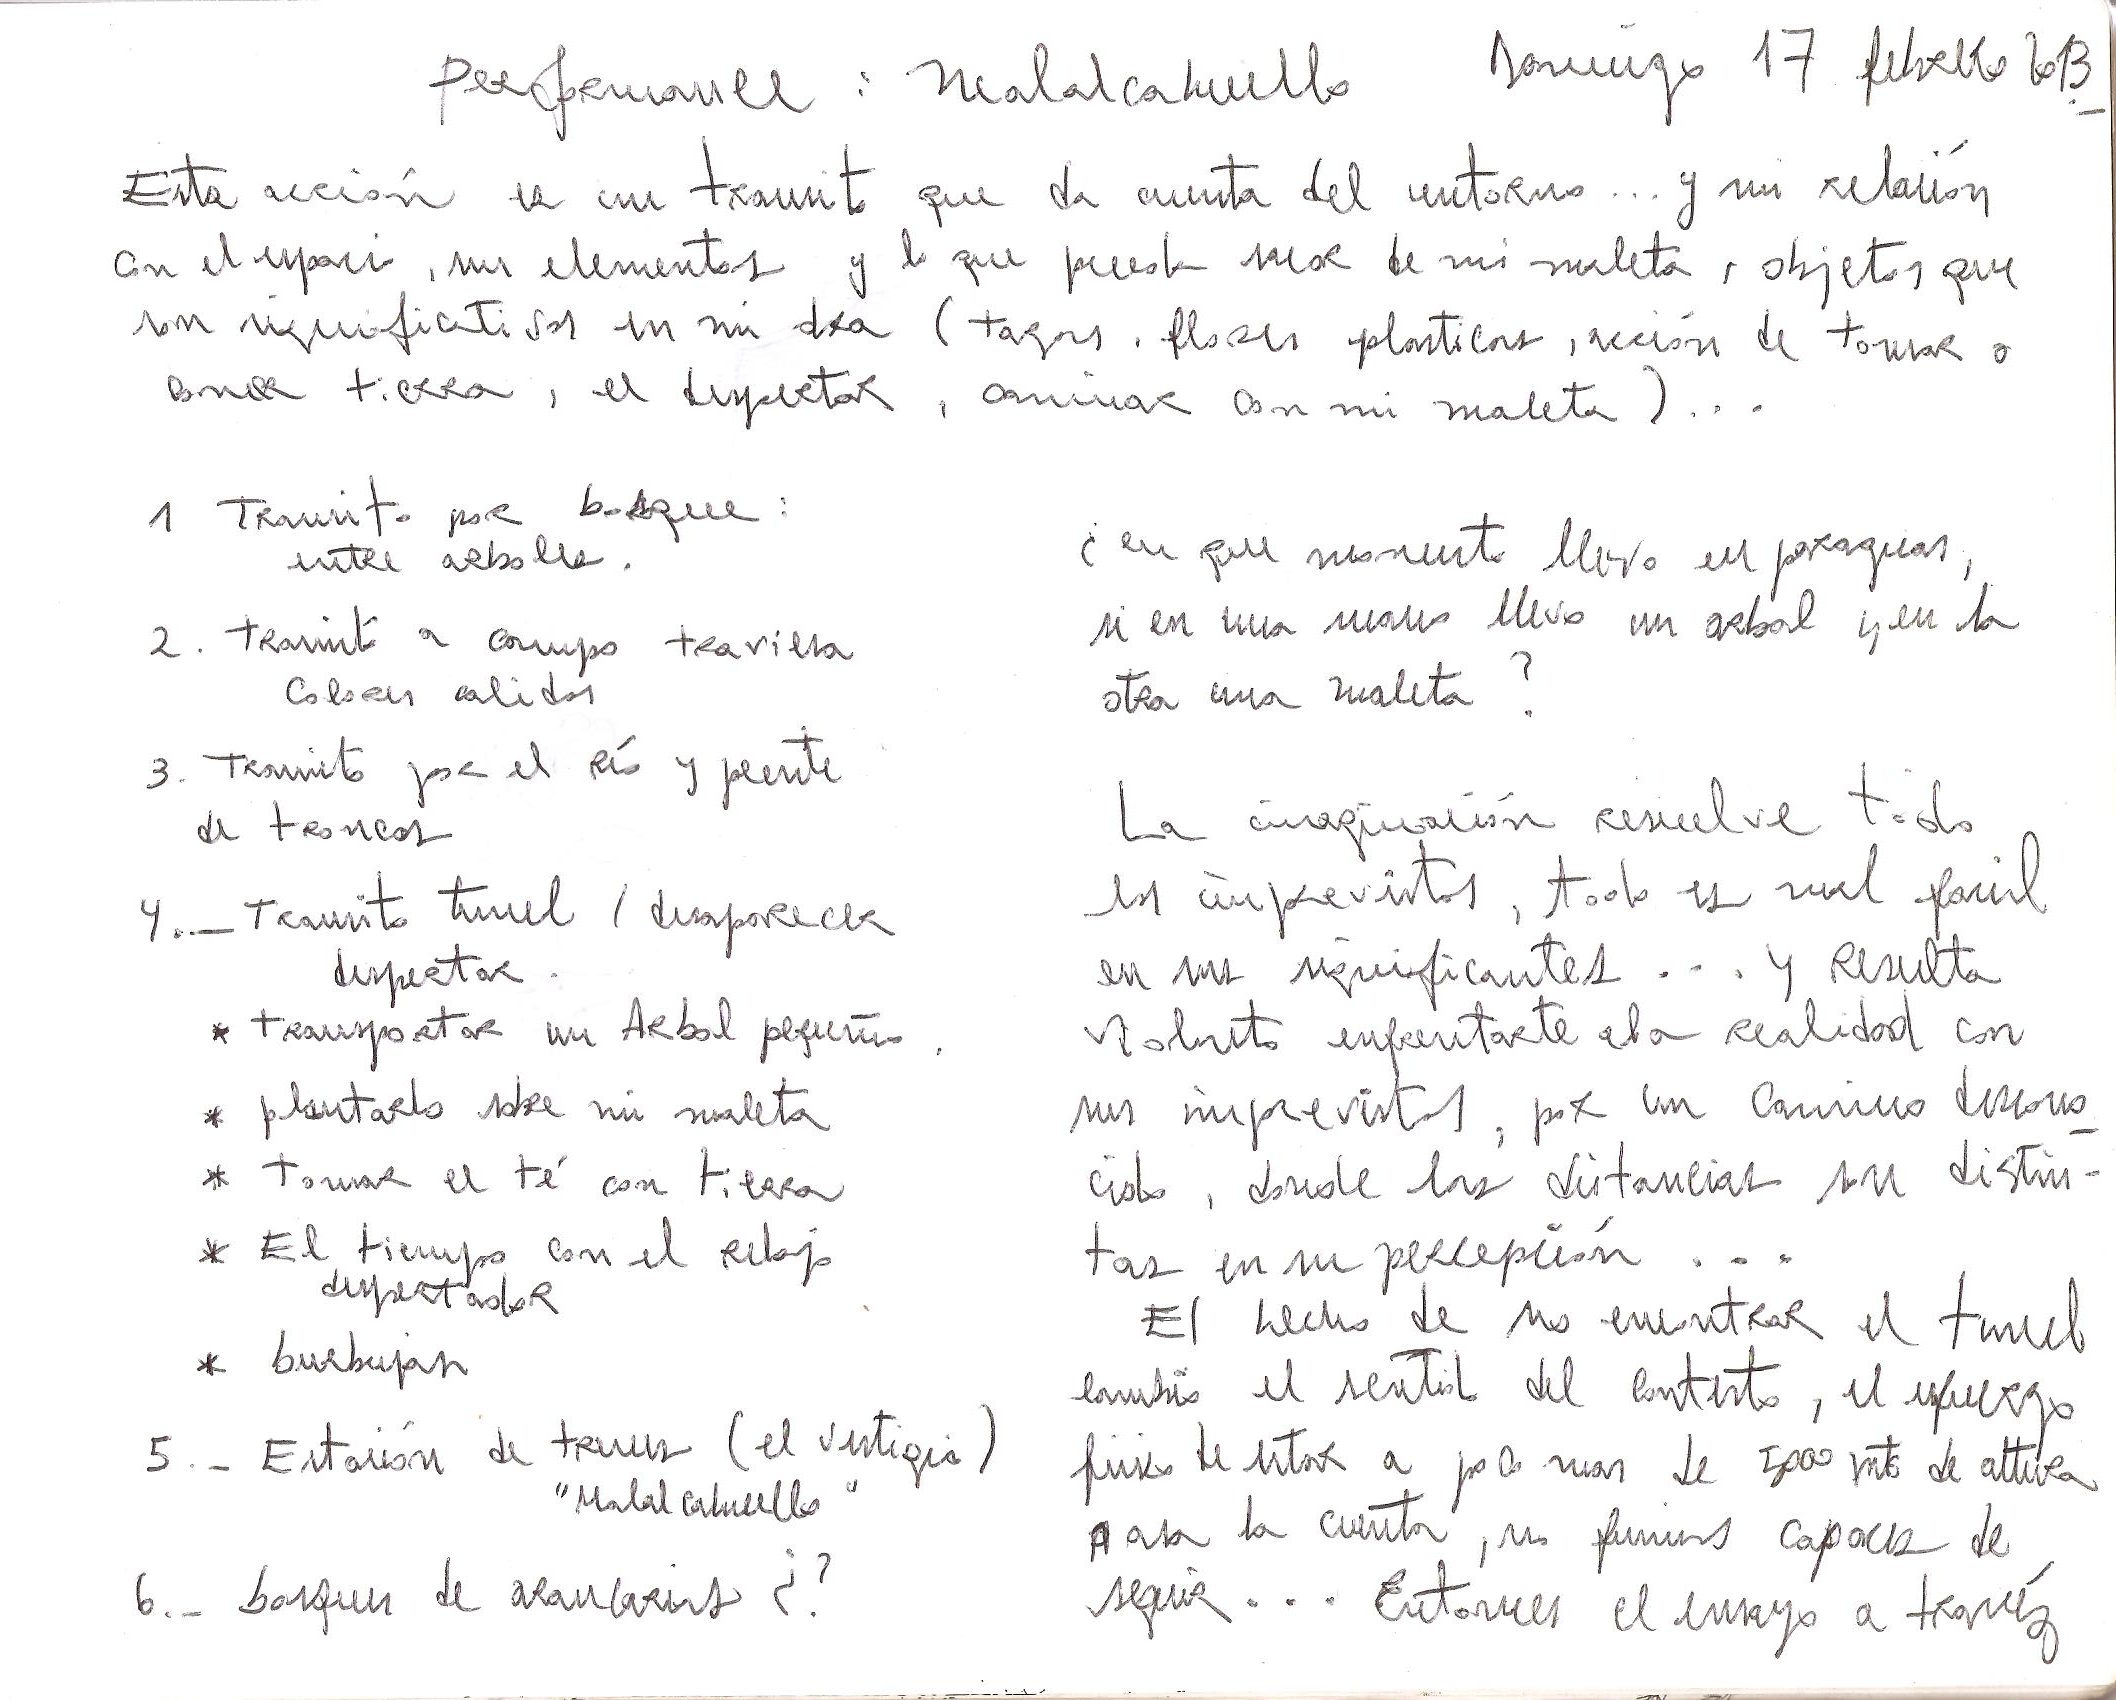 Performance : Malalcahuello Domingo 17 febrero 2013.-
Esta acción es un transito que da cuenta del entorno ... y mi relación
con el espacio, sus elementos y lo que pueda sacar de mi maleta, objetos que
son significativos en mi obra (tazas, flores plasticas, acción de tomar o
comer tierra, el despertar, caminar con mi maleta) ...
1 Transito por bosque :
entre arboles.
2. transito a campo traviesa
colores calidos
3. transito por el río y puente
de troncos
4.- Transito tunel / desaparecer
despertar.
* transportar un Arbol pequeño.
* plantarlo sobre mi maleta
* Tomar el té con tierra
* El tiempo con el reloj
despertador
* burbujas
5.- Estación de trenes (el vestigio)
"Malalcahuello"
6.- bosques de araucarias ¿?
¿en que momento llevo el paraguas,
si en una mano llevo un arbol y en la
otra una maleta?
La imaginación resuelve todo
los imprevistos, todo es mas facil
en sus significantes ... y Resulta
Violento enfrentarte a la realidad con
sus imprevistos, por un camino descono
cido, donde las distancias son distin-
tas en su percepción ...
El hecho de no encontrar el tunel
cambió el sentido del contexto, el esfuerzo
fisico de estar a poco mas de 5000 mts de altura
pasa la cuenta, no fuimos capaces de
seguir ... Entonces el ensayo a travéz